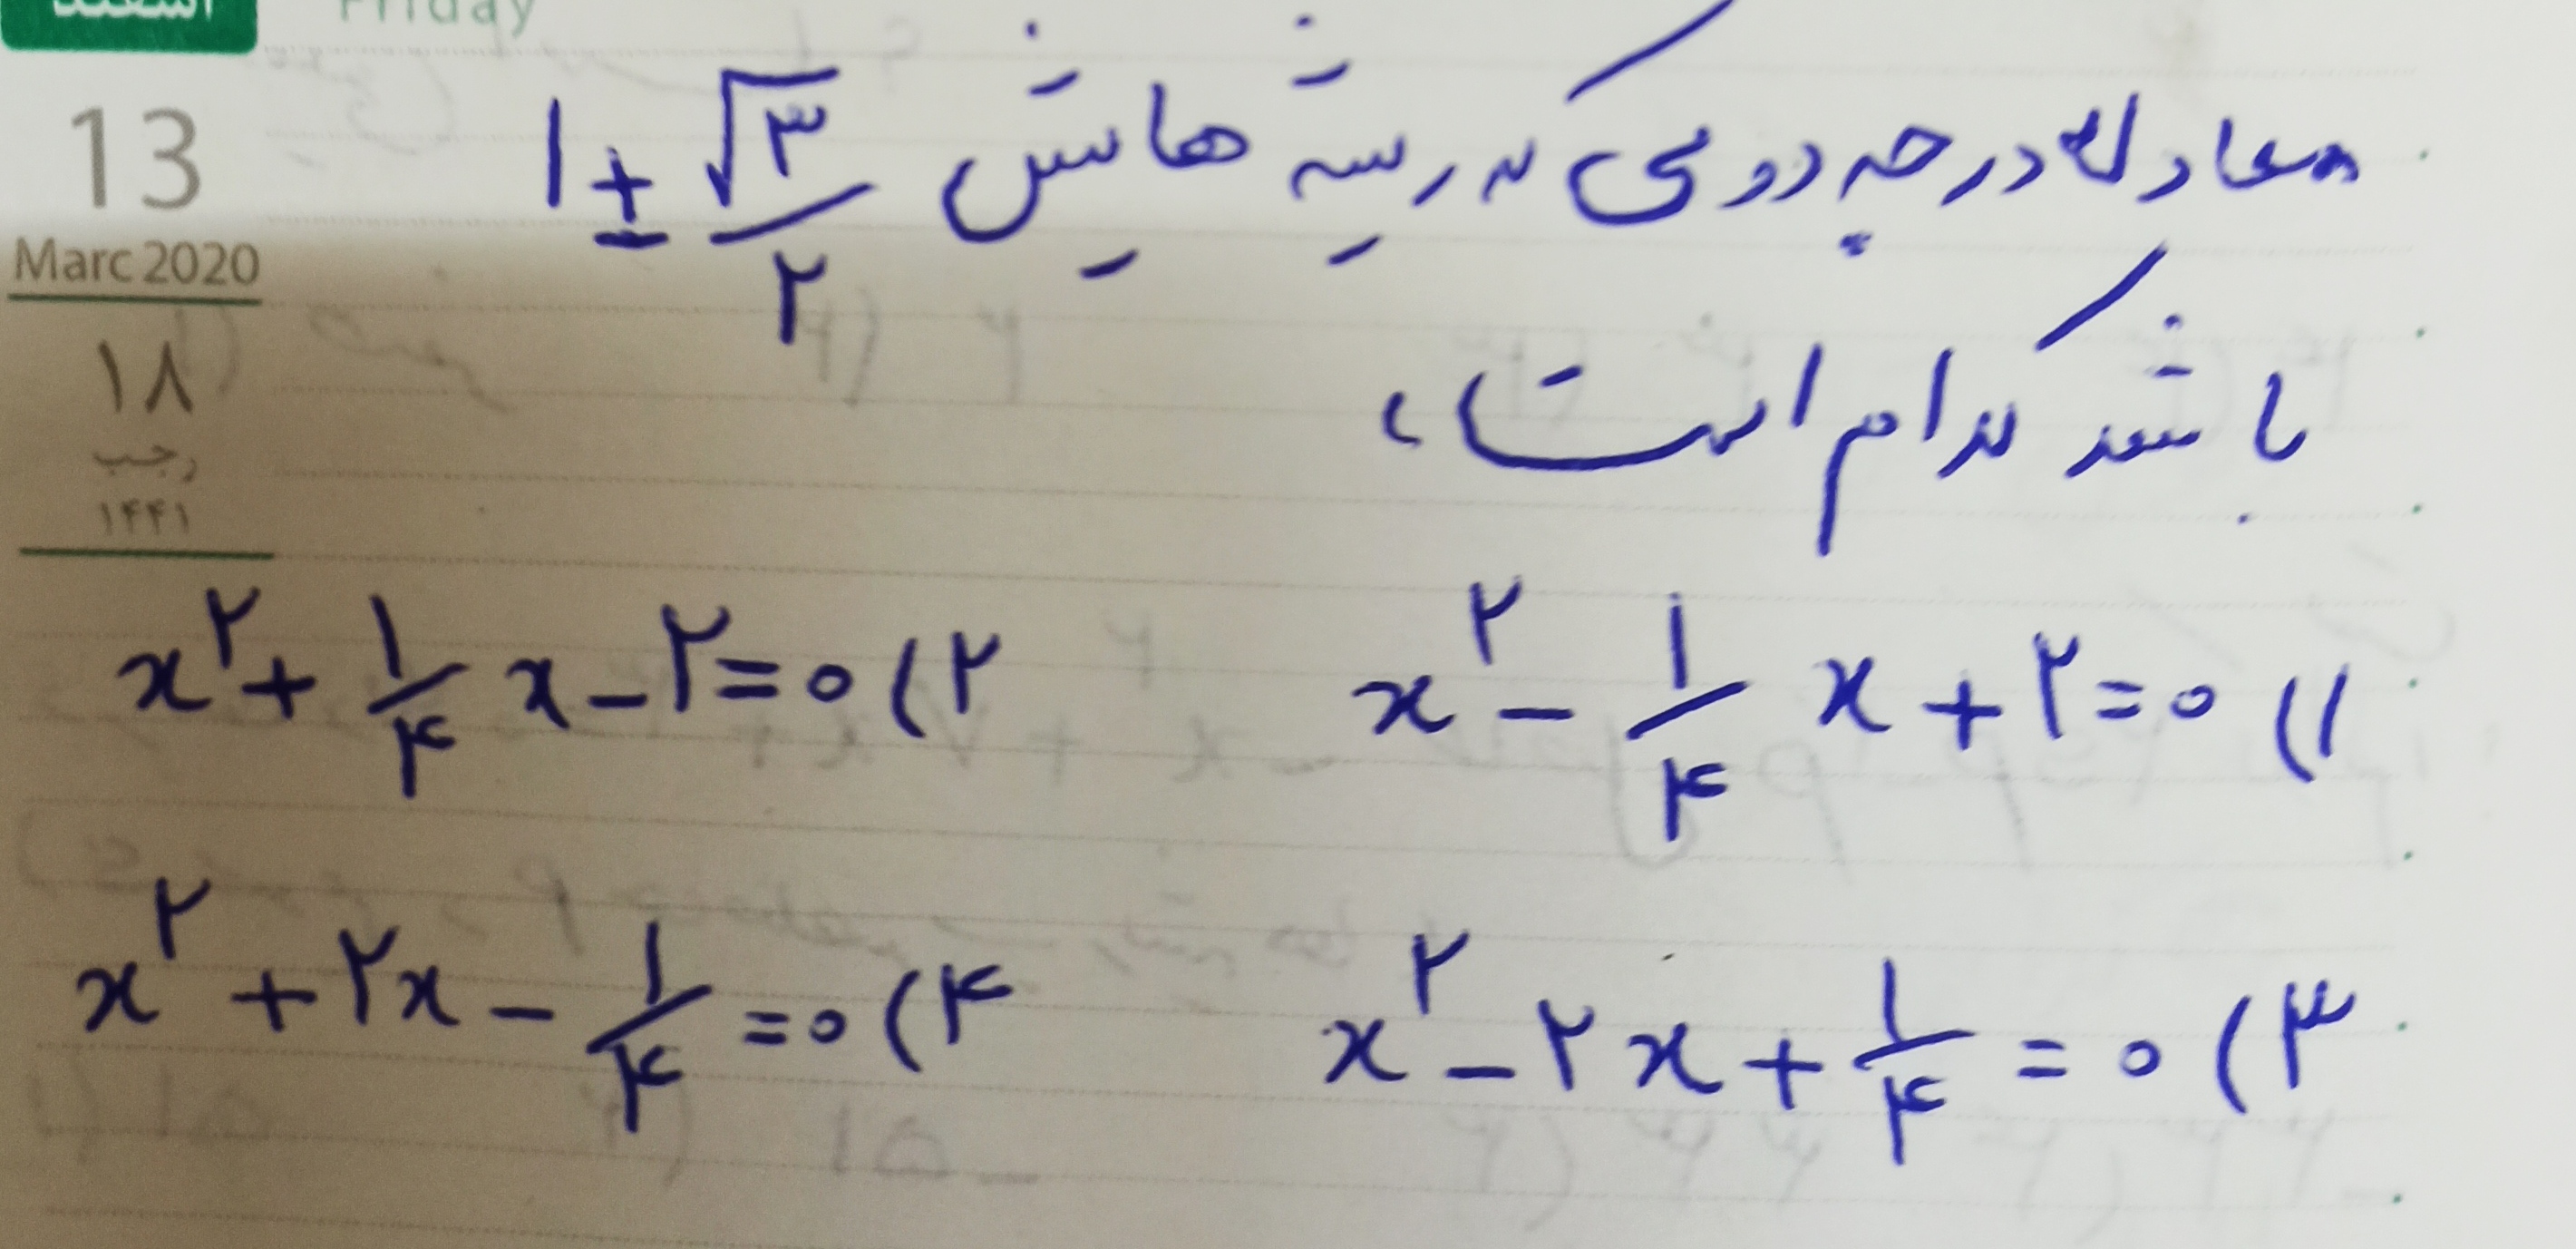 Friday
13
Marc 2020
۱۸
رجب
۱۴۴۱
معادله درجه دومی که ریشه هایش ۱ ± √۳/۲
باشد کدام است؟
۱) x² - ۱/۴ x + ۲ = ۰
۲) x² + ۱/۴ x - ۲ = ۰
۳) x² - ۲x + ۱/۴ = ۰
۴) x² + ۲x - ۱/۴ = ۰